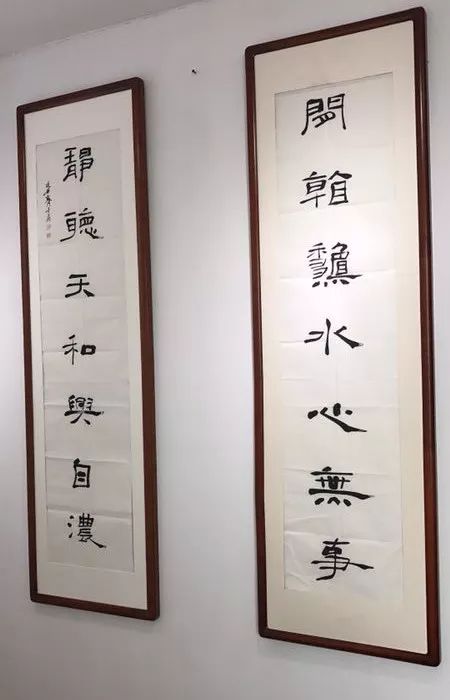 閒看龝水心無事
靜聽天和興自濃